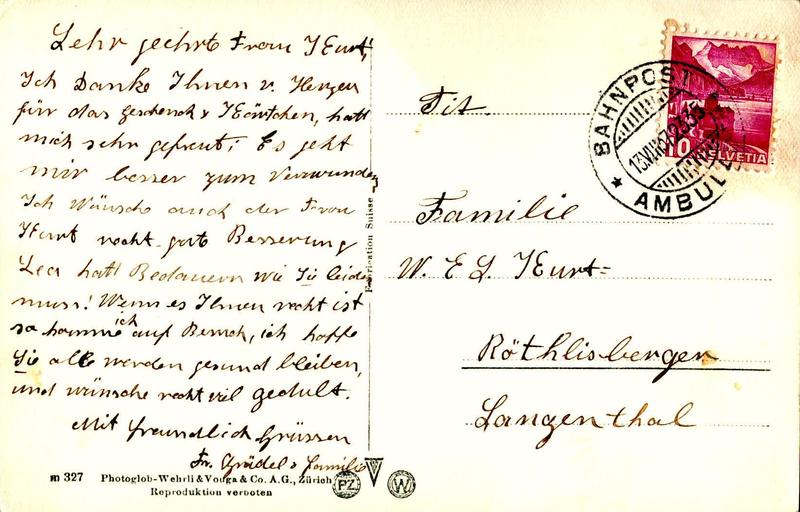 Sehr geehrte Frau Kurt,
Ich Danke Ihnen v. Herzen
für das geschenck & Kärtchen, hatt
mich sehr gefreut; Es geht
mir besser zum Verwundern
Ich Wünsche auch der Frau
Kurt recht gute Besserung
Lea hatt Bedauern wie Sie leiden
muss! Wenn es Ihnen recht ist
so komme ich auf Besuch, ich hoffe
Sie alle werden gesund bleiben,
und wünsche recht viel gedult.
Mit freundlich Grüssen
Fr. Grädel & Familie
m 327 Photoglob-Wehrli & Vouga & Co. A.G., Zürich
Reproduktion verboten
PZ W
Fabrication Suisse
BAHNPOST
AMBULANT
10 HELVETIA
Tit.
Familie
W. E L. Kurt-
Röthlisberger
Langenthal